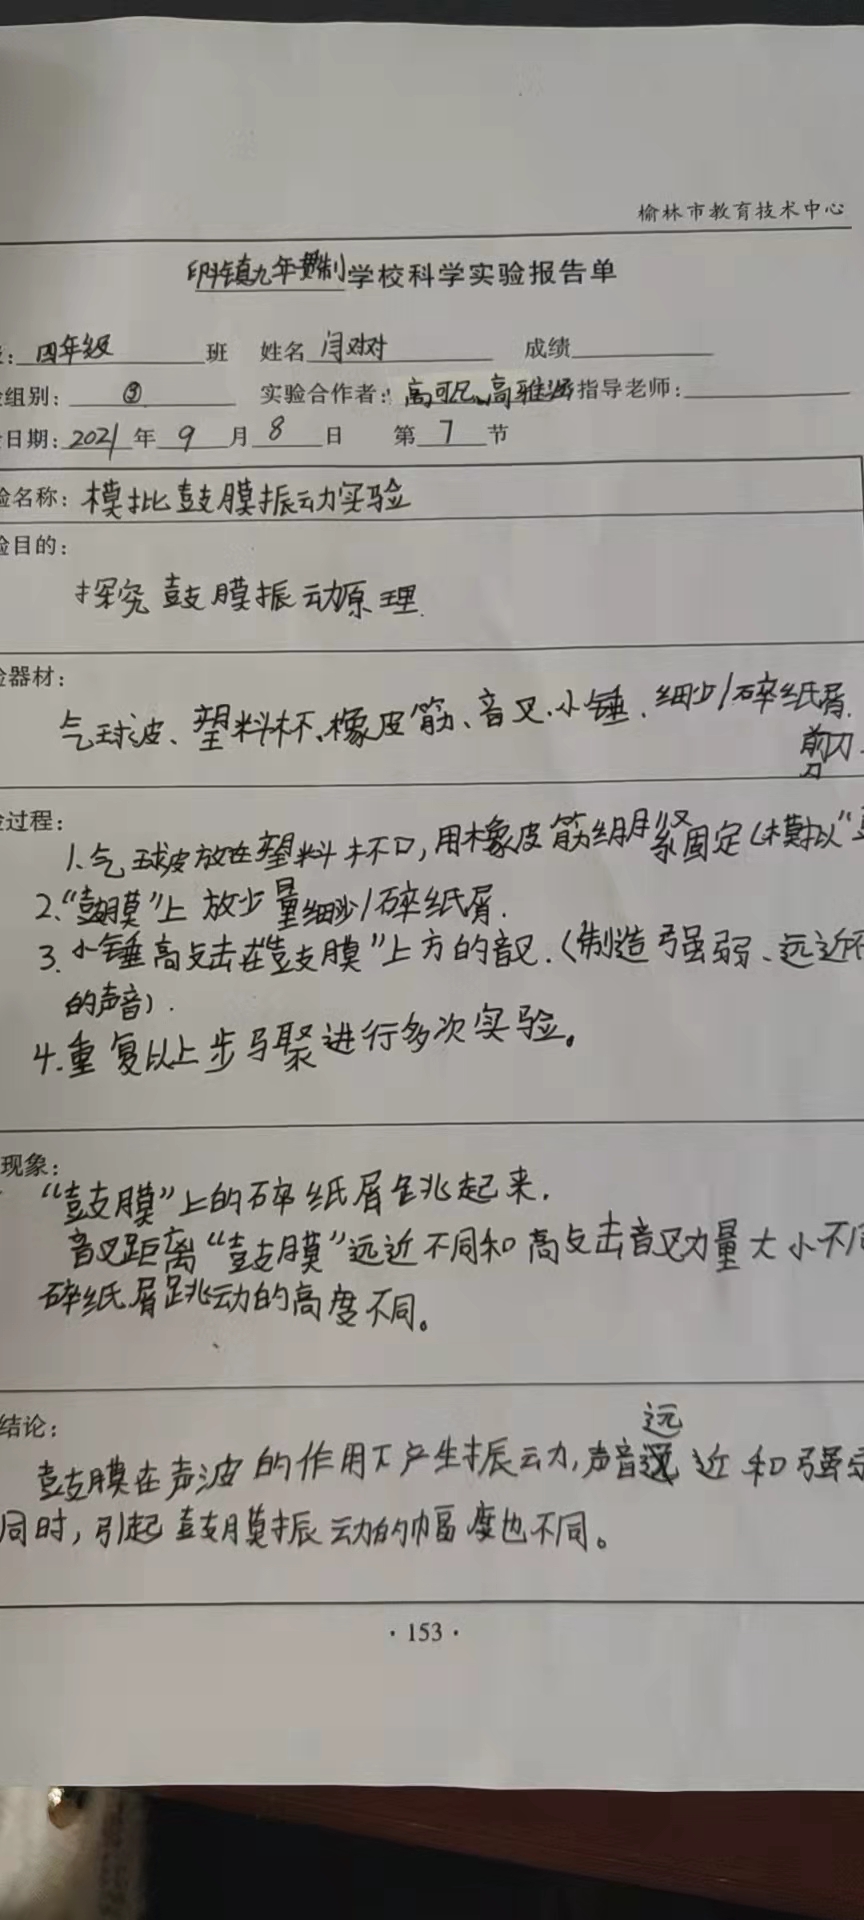 榆林市教育技术中心
印斗镇九年贯制学校科学实验报告单
四年级 班 姓名 闫对对 成绩
组别: ③ 实验合作者: 高可凡、高雅 指导老师:
日期: 2021 年 9 月 8 日 第 7 节
名称: 模批鼓膜振动实验
目的:
探究鼓膜振动原理.
器材:
气球波、塑料杯、橡皮筋、音叉、小锤、细少/碎纸屑.
剪刀
过程:
1.气球皮放在塑料杯口,用橡皮筋绷紧固定(模拟“
2.“鼓膜”上放少量细沙/碎纸屑.
3.小锤高攴击在“鼓膜”上方的音叉.(制造强弱、远近不
的声音).
4.重复以上步骤进行多次实验。
现象:
“鼓膜”上的碎纸屑跳起来.
音叉距离“鼓膜”远近不同和高攴击音叉力量大小不同
碎纸屑跳动的高度不同。
结论:
远
鼓膜在声波的作用下产生振动,声音 近和强
同时,引起鼓膜振动的幅度也不同。
·153·